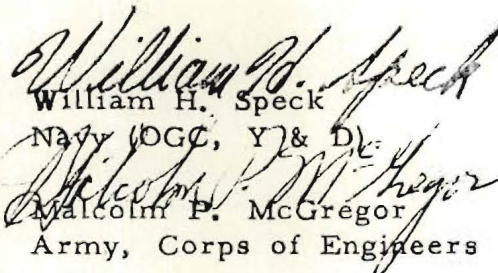 William H. Speck
William H. Speck
Navy (OGC, Y & D)
Malcolm P. McGregor
Malcolm P. McGregor
Army, Corps of Engineers